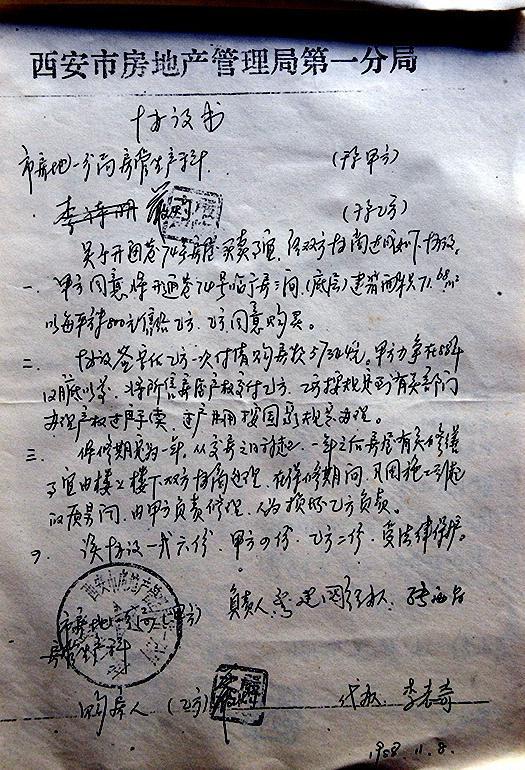 西安市房地产管理局第一分局
协议书
市房地一分局房管生产科 (下称甲方)
(下称乙方)
关于开通巷74号房屋买卖事宜,经双方协商达成如下协议。
一、甲方同意将开通巷74号临街房三间(底层)建筑面积共71.68m²
以每平方米800元售给乙方,乙方同意购买。
二、协议签字后乙方一次付清购房款57344元。甲方力争在88年
12月底以前,将所售房屋产权交付乙方,乙方按规定到有关部门
办理产权过户手续,过户费用按国家规定办理。
三、保修期定为一年,从交房之日算起,一年之后房屋有关修缮
事宜由楼上楼下双方协商处理。在保修期间,凡因施工引起
的质量问题,由甲方负责修理,人为损坏乙方负责。
四、该协议一式六份,甲方四份,乙方二份,受法律保护。
市房地一分局(甲方) 负责人: 经办人:
房管生产科
购房人(乙方) 代教: 李志奇
1988.11.8.